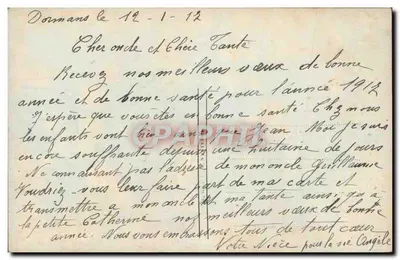 Dormans le 12-1-12
Cher oncle et Chère Tante
Recevez nos meilleurs vœux de bonne
année et de bonne santé pour l'année 1912
J'espère que vous êtes en bonne santé Chez nous
les enfants vont bien ainsi que Jean Moi je suis
encore souffrante depuis une huitaine de jours
Ne connaissant pas l'adresse de mon oncle Guillaume
Voudriez vous leur faire part de ma carte et
transmettre a mon oncle et ma tante ainsi qu'a
la petite Catherine nos meilleurs vœux de bonne
année. Nous vous embrassons tous de tout cœur
Votre Nièce pour la vie Angèle